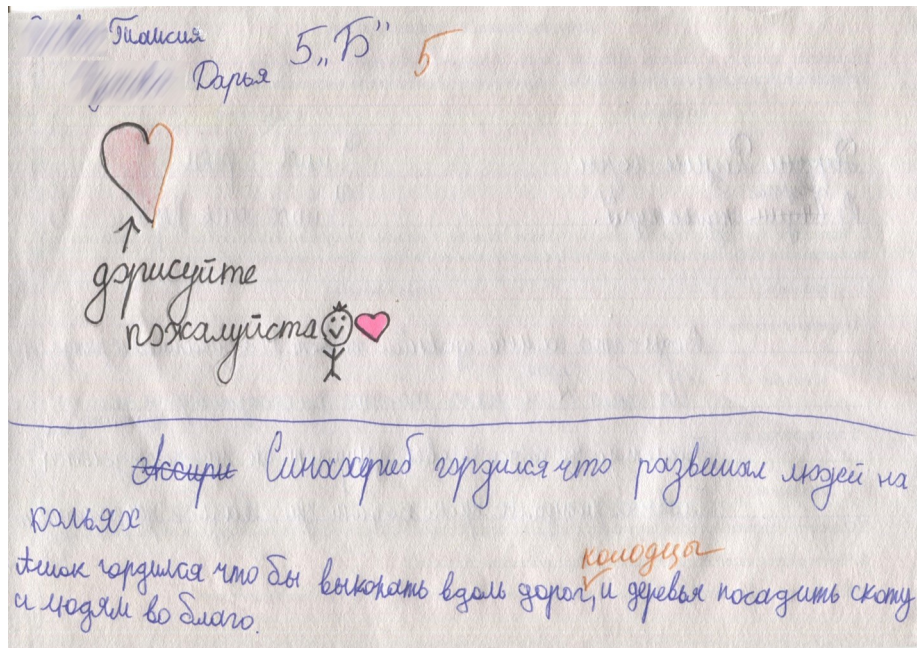 Таисия
5 „Б" 5
Дарья
дорисуйте
пожалуйста
Ассири Синаххериб гордился что развешал людей на
кольях
колодцы
Ашок гордился что бы выкопать вдоль дорог, и деревья посадить скоту
и людям во благо.